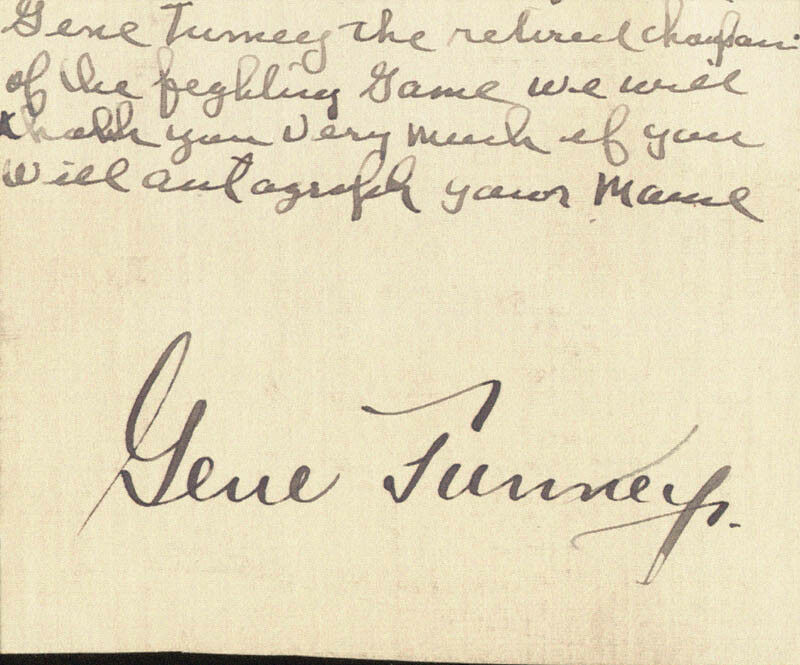 Gene Tunney the retired champion
of the fighting Game we will
thank you very much if you
will autograph your Name
Gene Tunney.